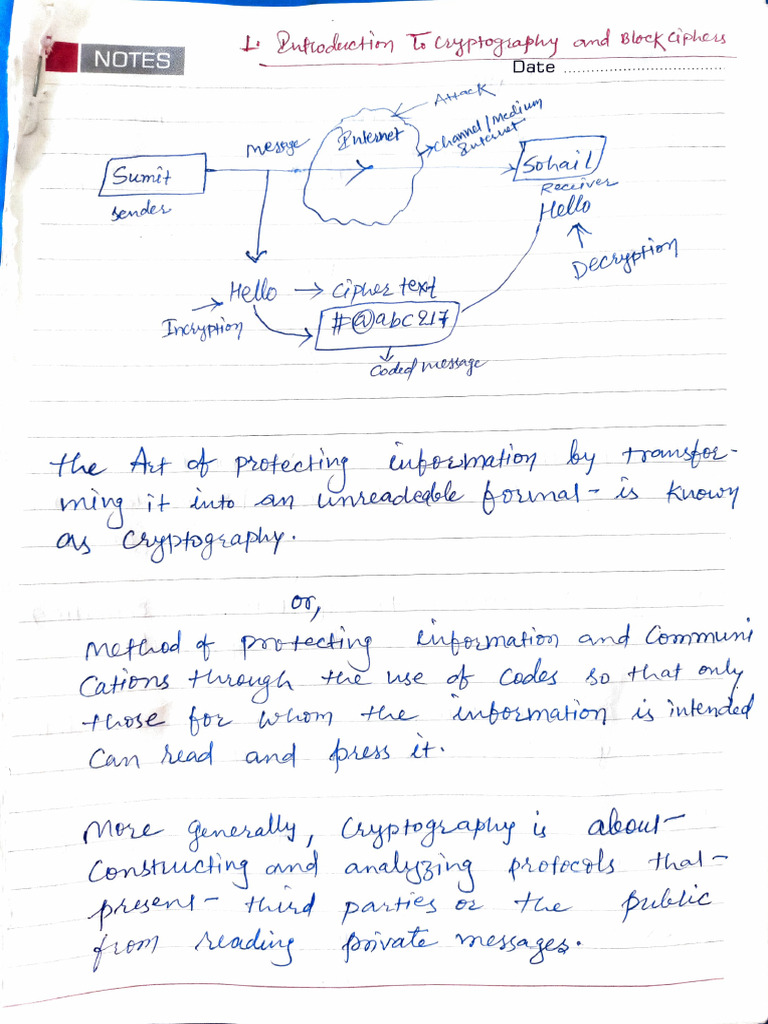 1. Introduction To Cryptography and Block Ciphers
NOTES
Date
Attack
Message
Internet
Channel/Medium
Internet
Sumit
Sohail
sender
Receiver
Hello
Decryption
Hello → Cipher text
Incryption
#@abc217
Coded message
the Art of protecting information by transfor-
ming it into an unreadeable format is known
as Cryptography.
or,
Method of protecting information and Communi
cations through the use of codes so that only
those for whom the information is intended
Can read and press it.
More generally, Cryptography is about
Constructing and analyzing protocols that
present third parties or the public
from reading private messages.